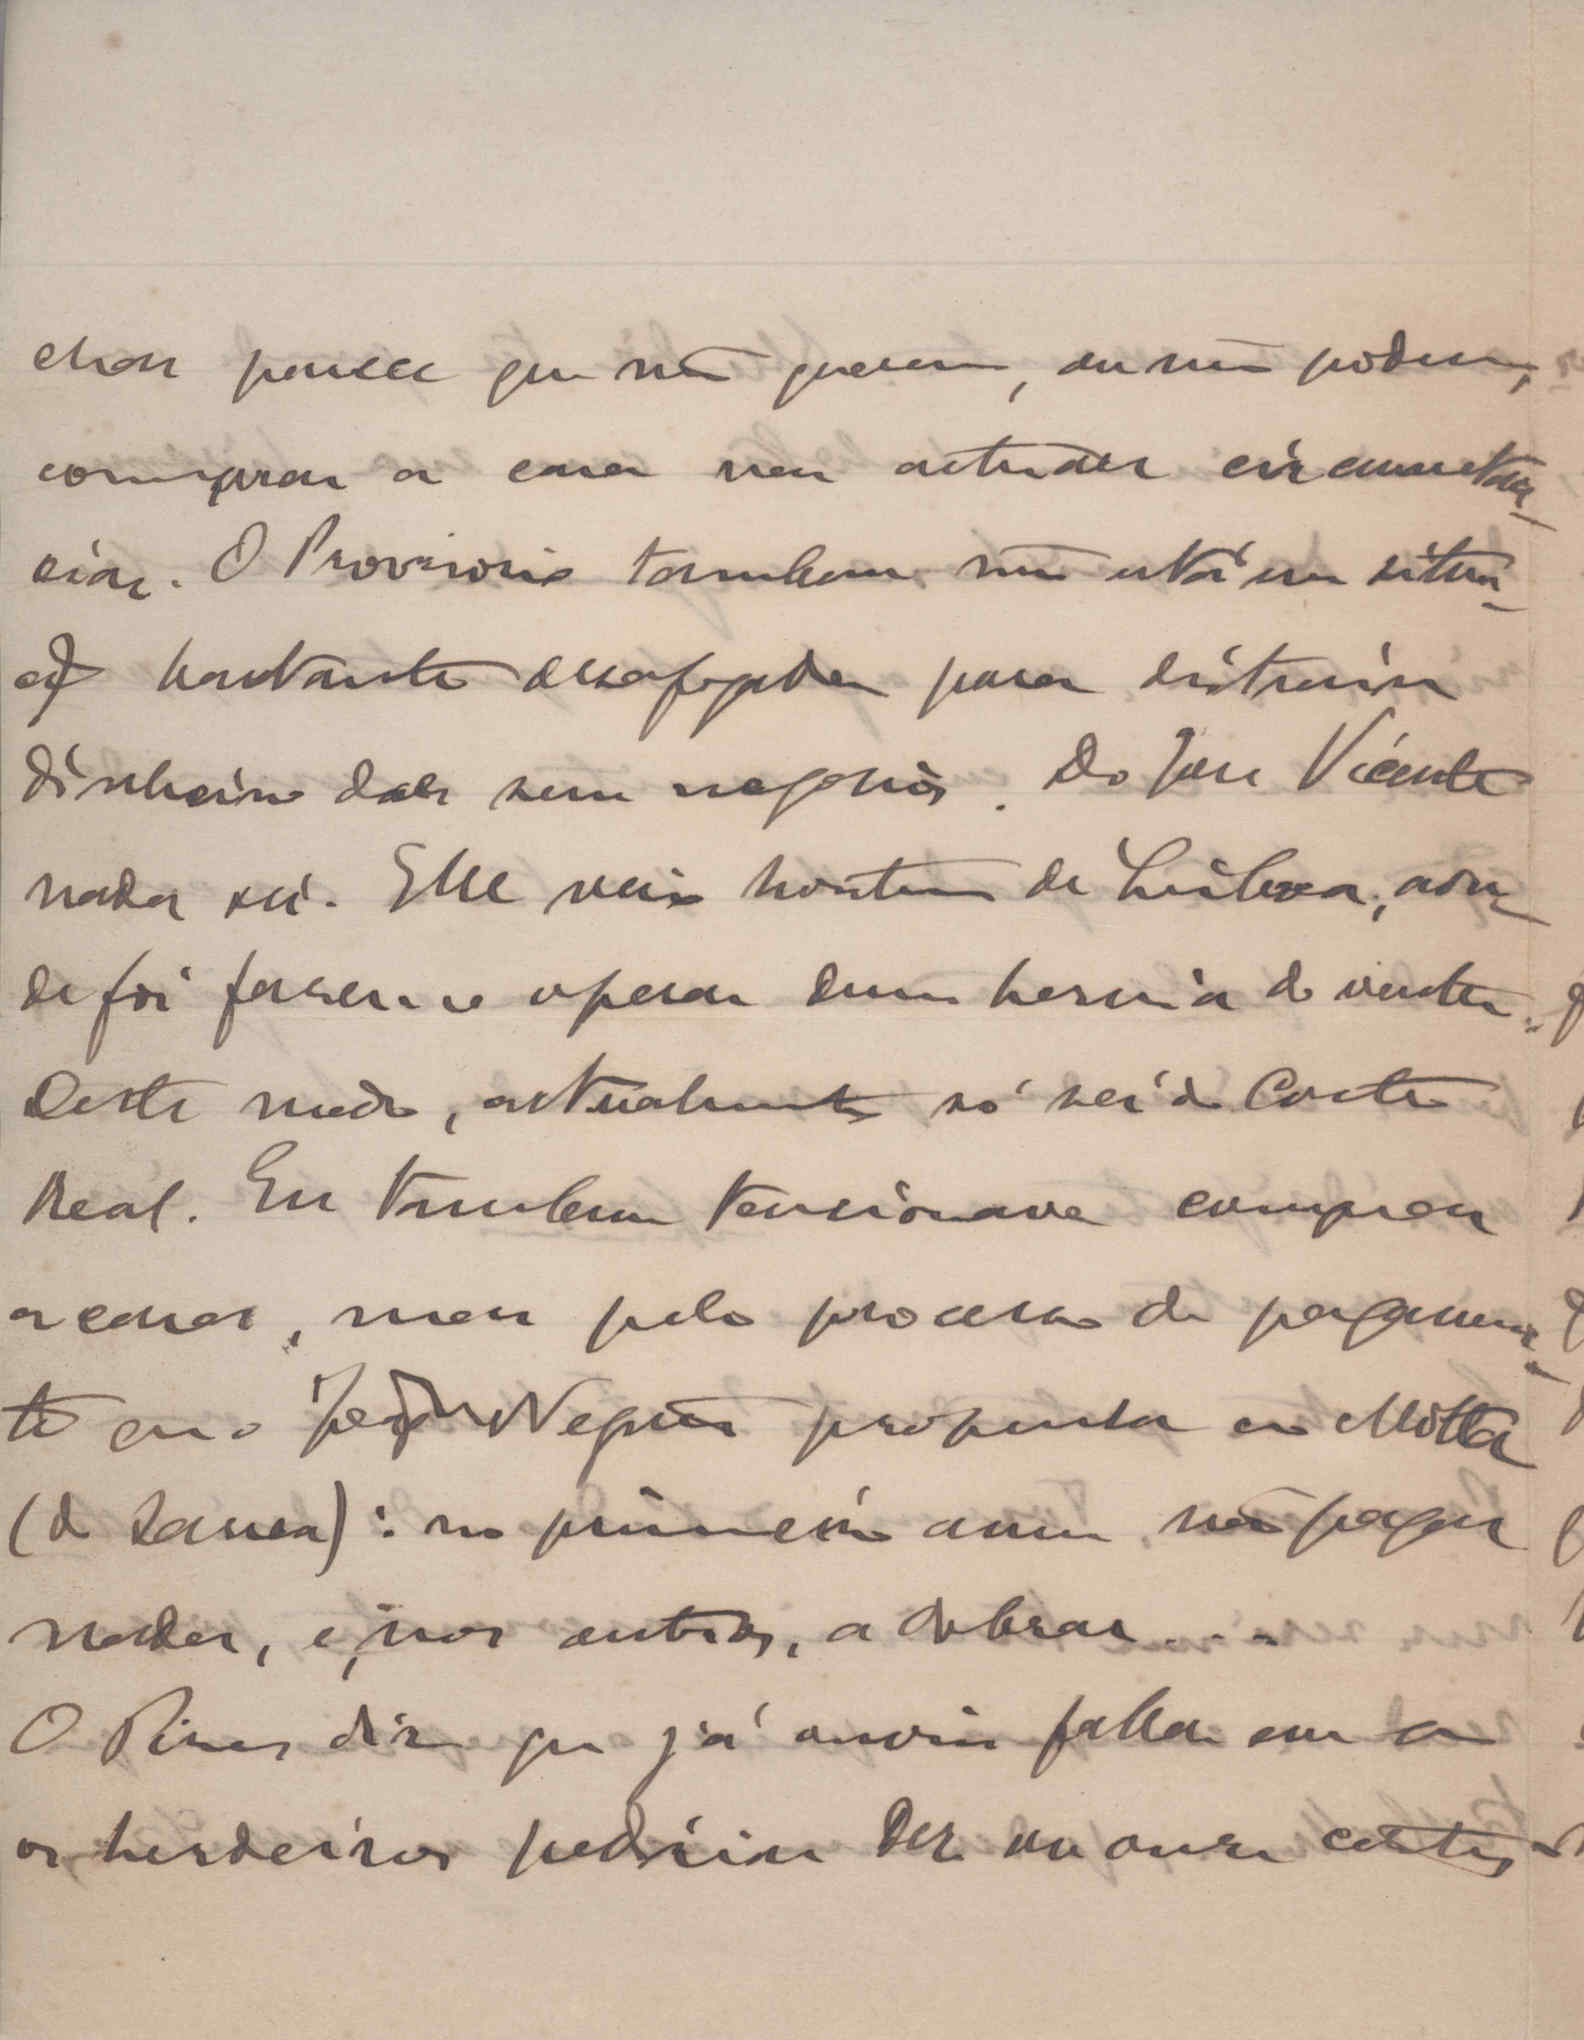 parece que não querem, ou não podem,
comprar a casa nas actuaes circumstan-
cias. O Provisorio tambem não está em situa-
ção bastante desafogada para distrair
dinheiro dos seus negocios. Do José Vicente
nada sei. Elle veio hontem de Lisboa, aon-
de foi fazer-se operar duma hernia do ventre.
Deste modo, actualmente só sei do Corte
Real. Eu tambem tencionava comprar
a casa, mas pelo processo de pagamen-
to que o Negrão propunha ao Motta
(de ): no primeiro anno não pagar
nada, e, nos outros, a dobrar...
O Pires diz que já ouviu fallar em
os herdeiros pediriam dez ou onze contos